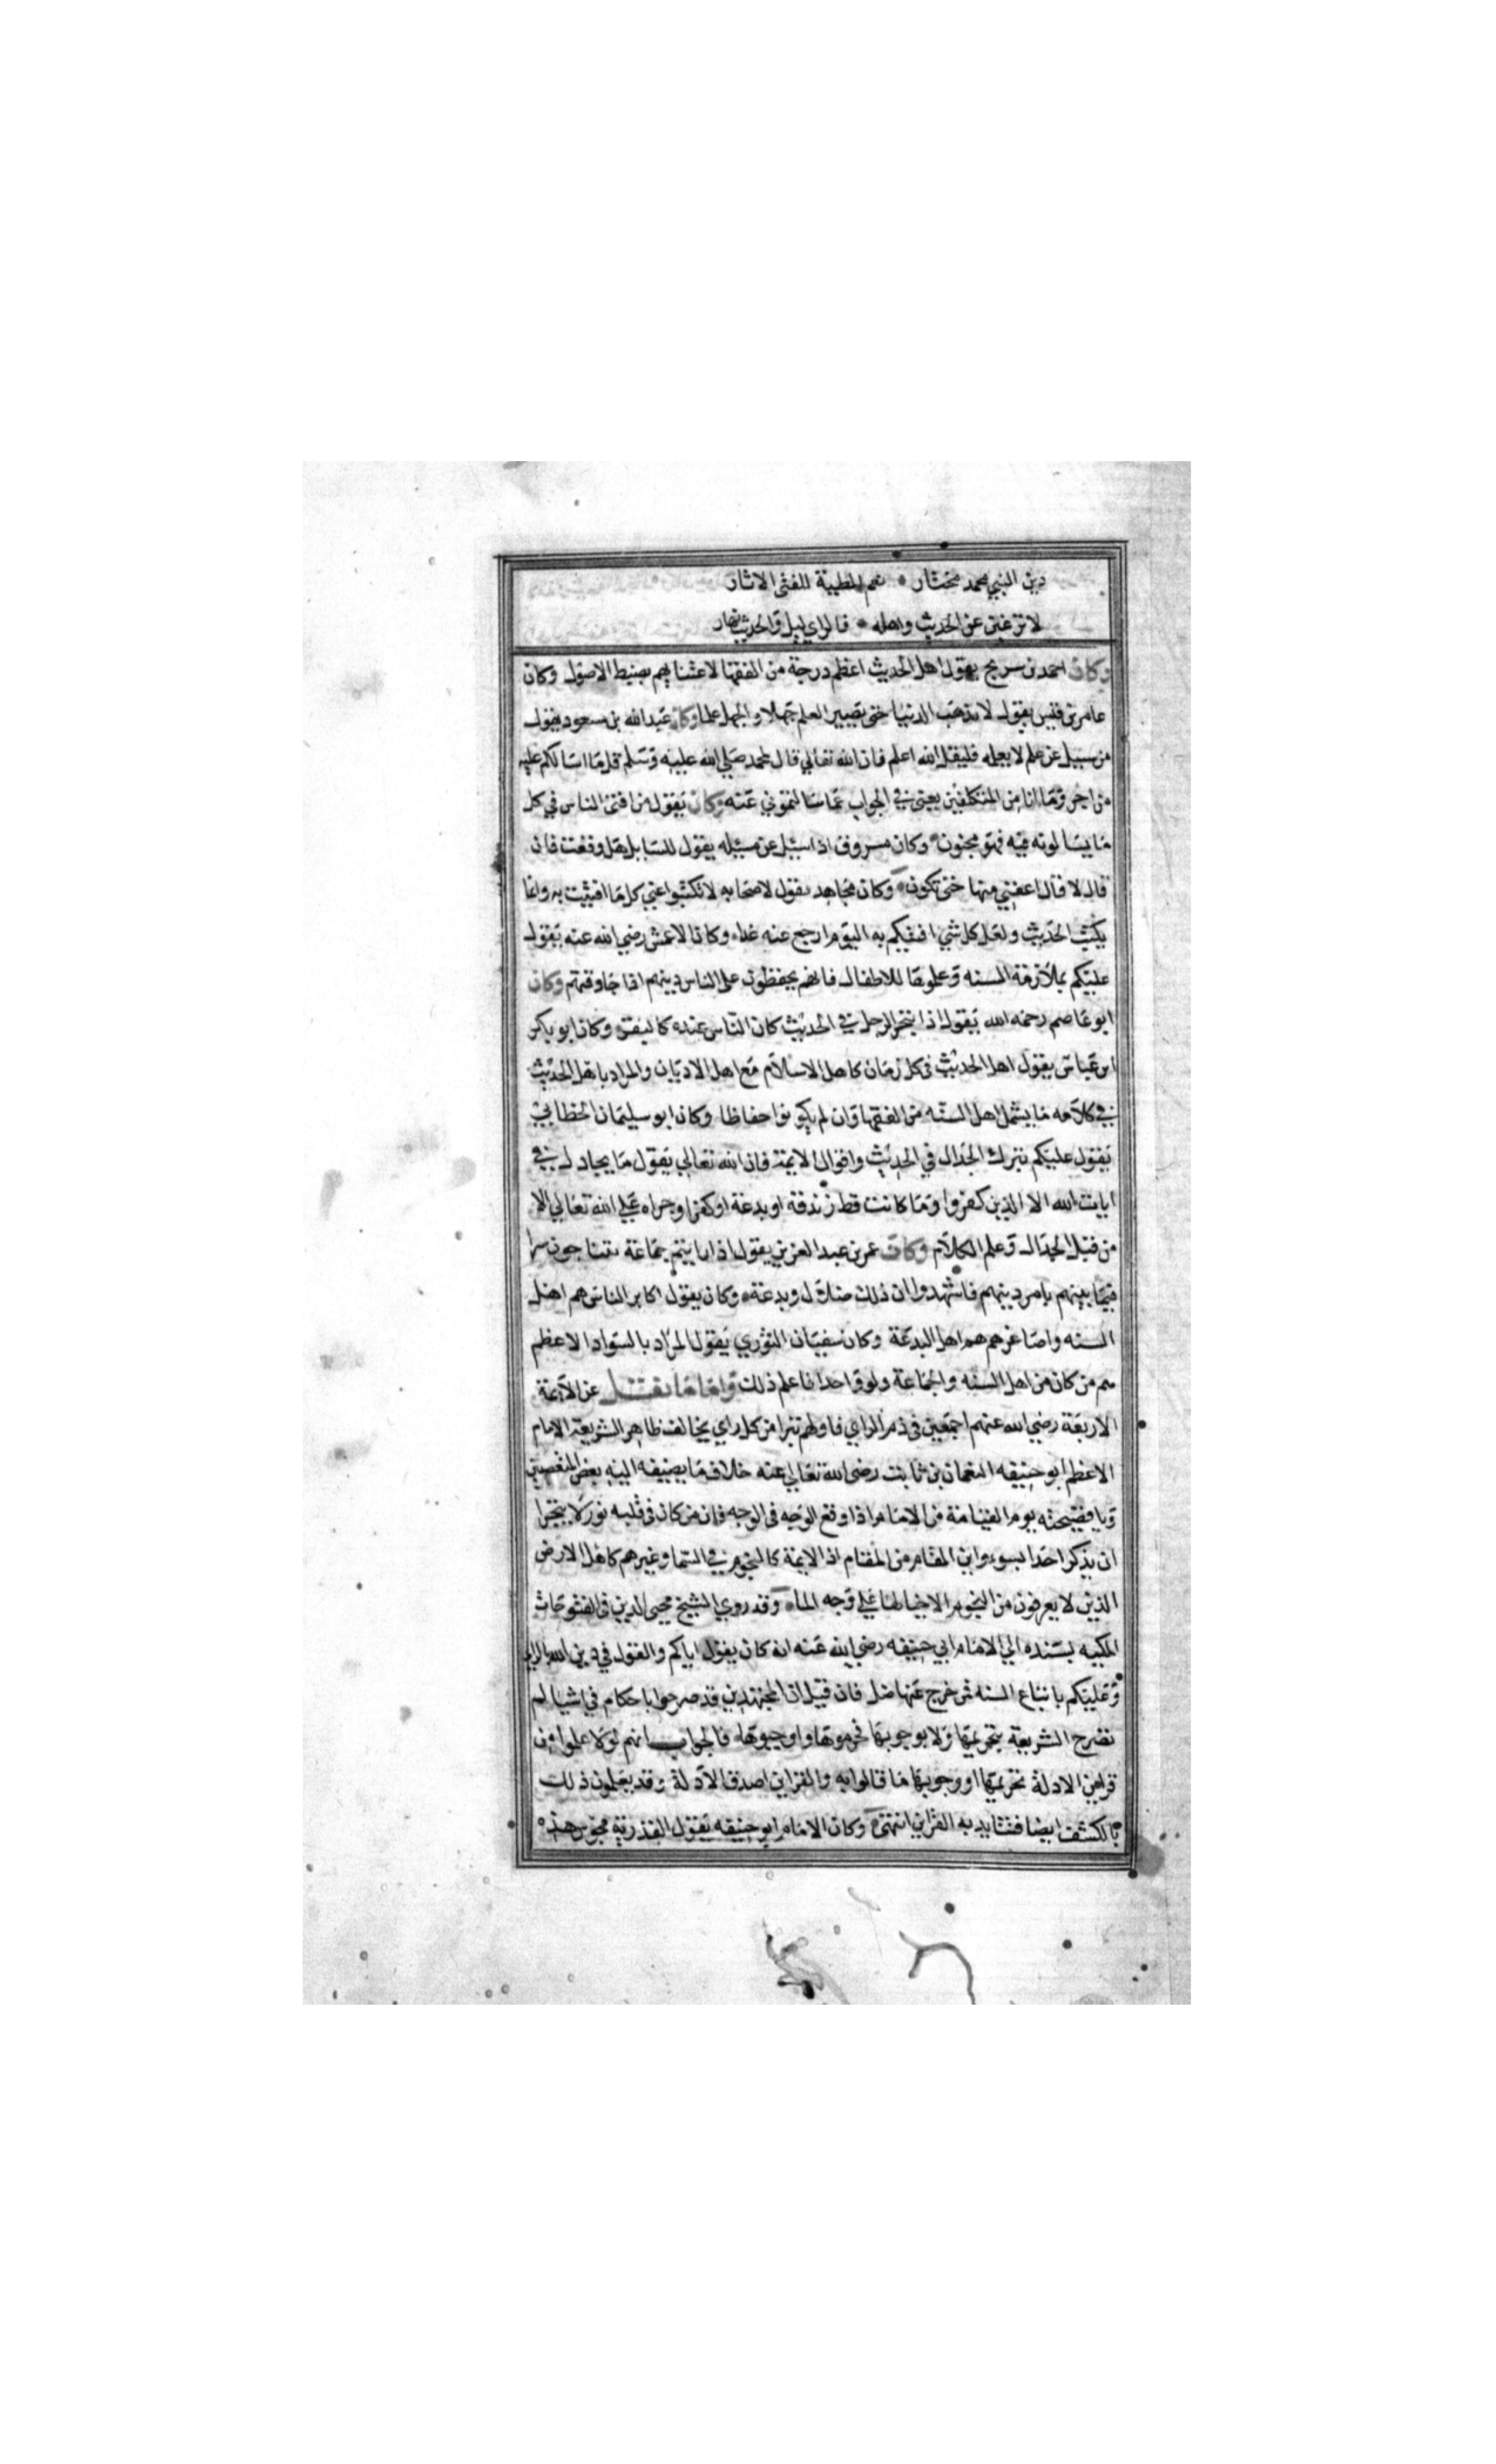 دين النبي محمد مختار • نعم المطية للفتى الاثار
لا ترغبن عن الحديث واهله • فالراي ليل والحديث نهار
وكان احمد بن سريج يقول اهل الحديث اعظم درجة من الفقها لاعتنايهم بضبط الاصول وكان
عامر بن قيس يقول لا تذهب الدنيا حتى يصير العلم جهلا والجهل علما وكان عبد الله بن مسعود يقول
من سيل عن علم لا يعلمه فليقل الله اعلم فان الله تعالي قال لمحمد صلي الله عليه وسلم قل ما اسالكم عليه
من اجر وما انا من المتكلفين يعني في الجواب عما سالتموني عنه وكان يقول من افتى الناس في كل
ما يسالونه فيه فهو مجنون • وكان مسروق اذا سيل عن مسيله يقول للسايل هل وقعت فان
قال لا قال اعفني منها حتى تكون • وكان مجاهد يقول لاصحابه لا تكتبوا عني كل ما افتيت به وانما
يكتب الحديث ولعل كل شي افتيكم به اليوم ارجع عنه غدا وكان الاعمش رضي الله عنه يقول
عليكم بملازمة السنه وعلموها للاطفال فانهم يحفظون على الناس دينهم اذا جا وقتهم وكان
ابو عاصم رحمه الله يقول اذا تبحر الرجل في الحديث كان الناس عنده كالبقر وكان ابو بكر
ابن عياش يقول اهل الحديث في كل زمان كاهل الاسلام مع اهل الاديان والمراد باهل الحديث
في كلامه ما يشمل اهل السنه من الفقها وان لم يكونوا حفاظا وكان ابو سليمان الخطابي
يقول عليكم بترك الجدال في الحديث واقوال الايمة فان الله تعالي يقول ما يجادل في
ايات الله الا الذين كفروا وما كانت قط زندقة او بدعة او كفر او جراه علي الله تعالي الا
من قبل الجدال وعلم الكلام وكان عمر بن عبد العزيز يقول اذا رايتم جماعة يتناجون سرا
فيما بينهم بامر دينهم فاشهدوا ان ذلك ضلال وبدعة • وكان يقول اكابر الناس هم اهل
السنه واصاغرهم هم اهل البدعة وكان سفيان الثوري يقول المراد بالسواد الاعظم
هم من كان من اهل السنه والجماعة ولو واحدا فاعلم ذلك واما ما نقل عن الايمة
الاربعة رضي الله عنهم اجمعين في ذم الراي فاولهم تبرا من كل راي يخالف ظاهر الشريعة الامام
الاعظم ابو حنيفه النعمان بن ثابت رضي الله تعالي عنه خلاف ما يضيفه اليه بعض المتعصبين
ويا فضيحته يوم القيامة من الامام اذا وقع الوجه في الوجه فان من كان في قلبه نور لا يتجرا
ان يذكر احدا بسوء واين المقام من المقام اذ الايمة كالنجوم في السما وغيرهم كاهل الارض
الذين لا يعرفون من النجوم الا خيالها علي وجه الماء وقد روي الشيخ محيي الدين في الفتوحات
المكيه بسنده الي الامام ابي حنيفه رضي الله عنه انه كان يقول اياكم والقول في دين الله بالراي
وعليكم باتباع السنه فمن خرج عنها ضل فان قيل ان المجتهدين قد صرحوا باحكام في اشيا لم
تصرح الشريعة بتحريمها ولا بوجوبها فحرموها واوجبوها فالجواب انهم لولا علموا من
قراين الادلة تحريمها او وجوبها ما قالوا به والقراين اصدق الادلة وقد يعلمون ذلك
بالكشف ايضا فتتايد به القراين انتهى وكان الامام ابو حنيفه يقول القدرية مجوس هذه